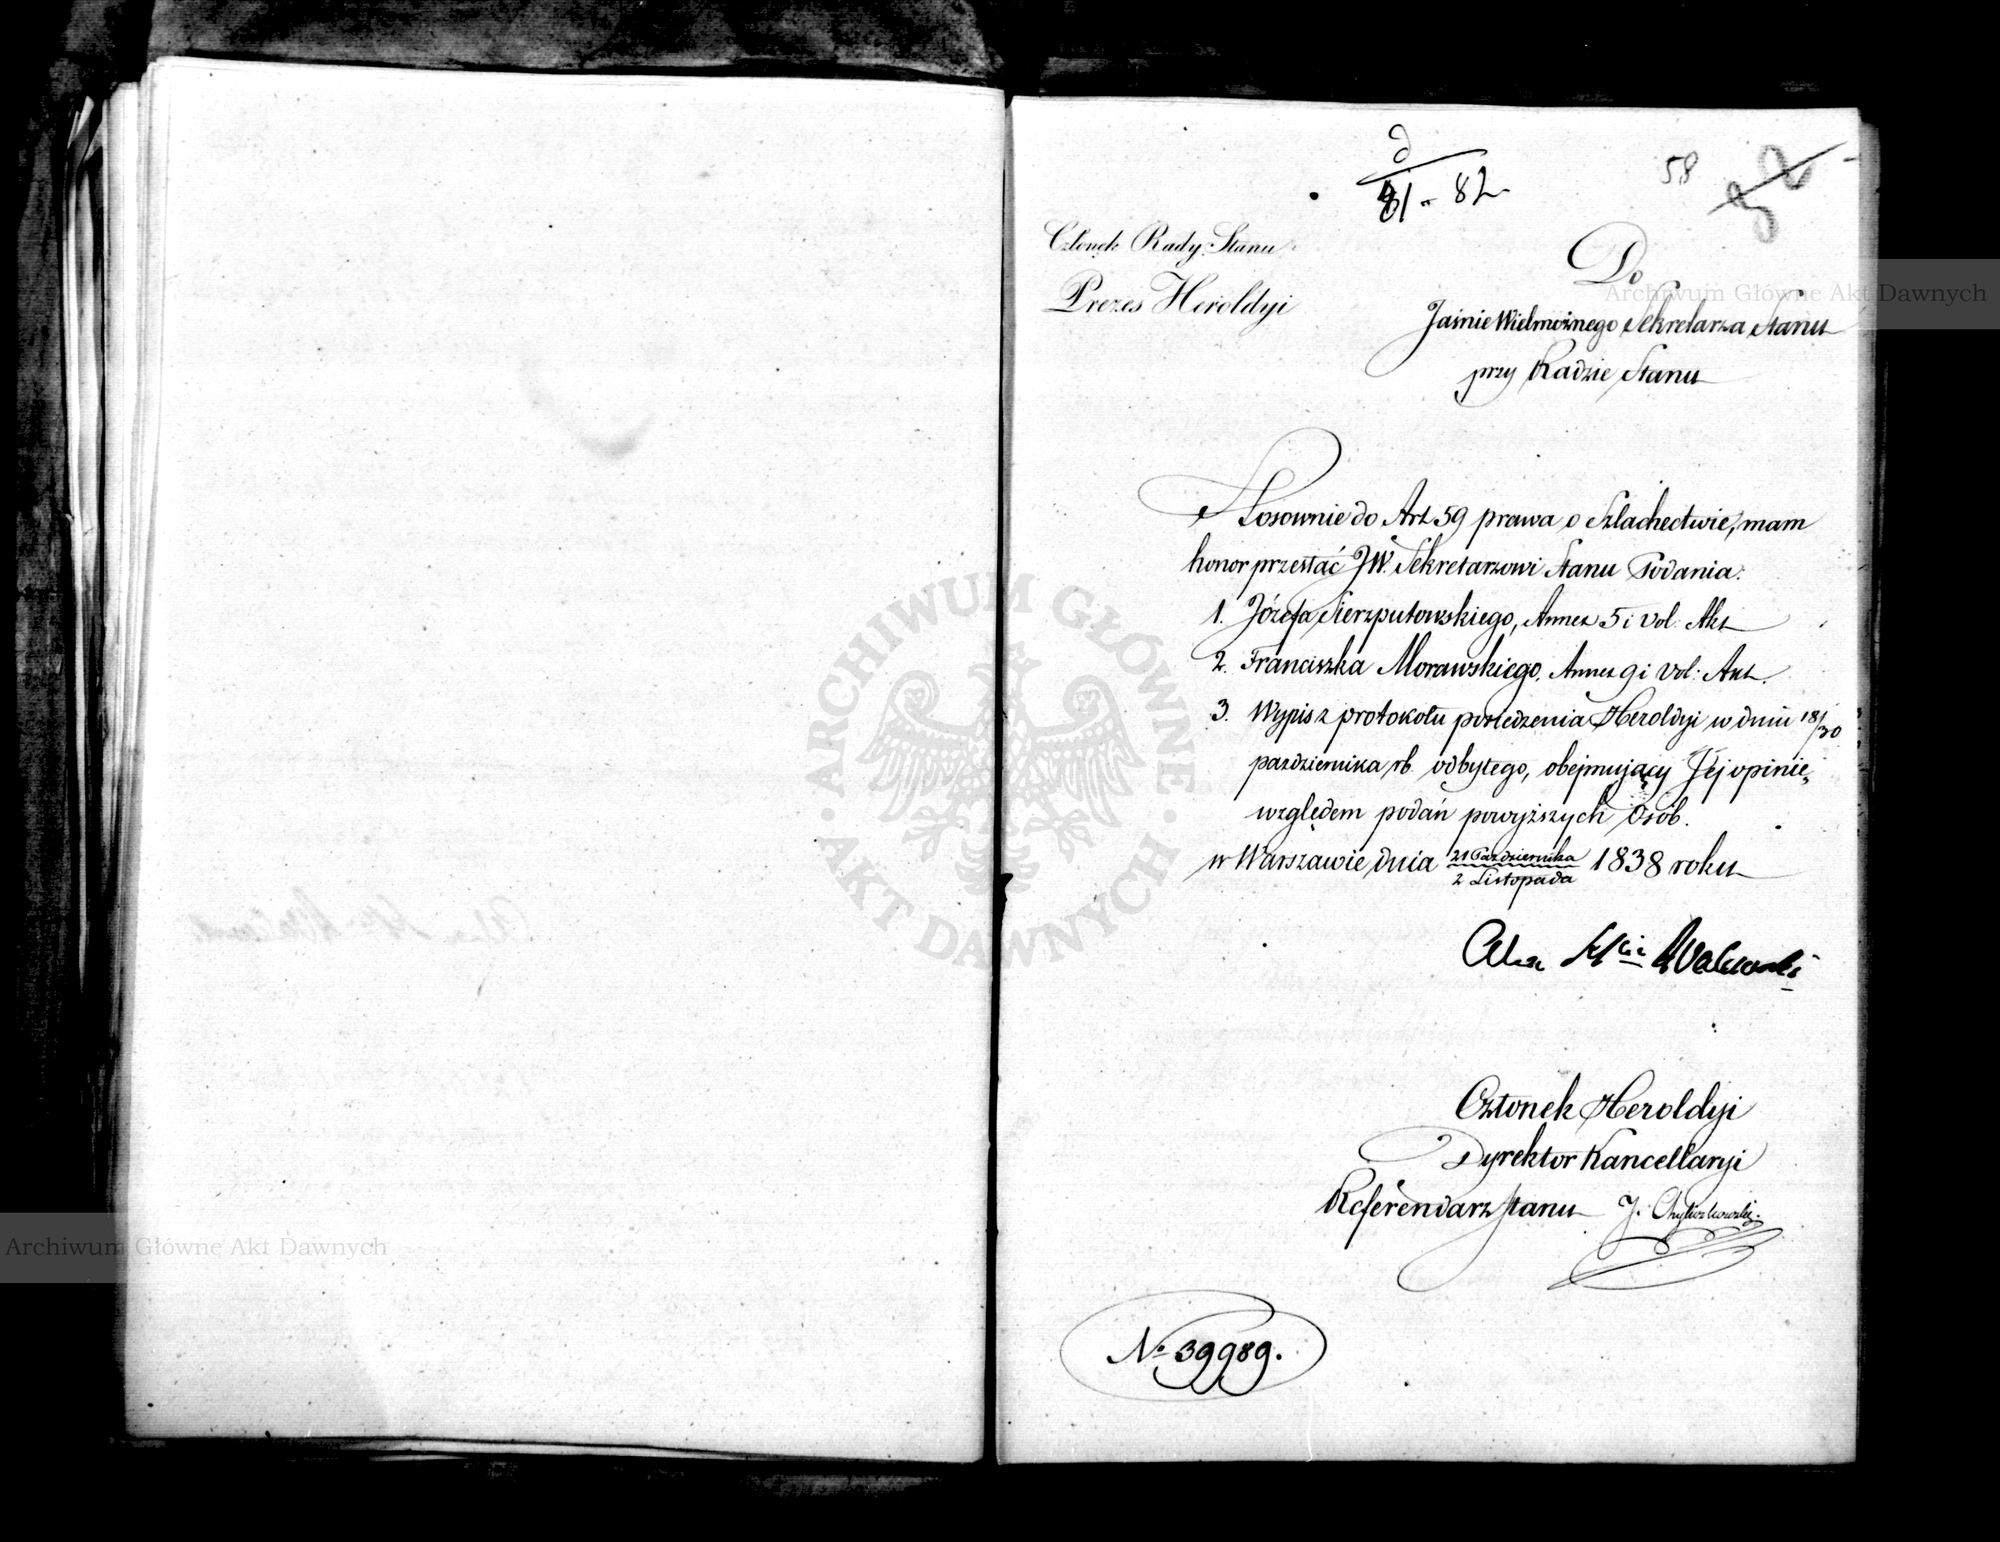 д
81 - 82
58
Członek Rady Stanu
Prezes Heroldyi
Do
Jaśnie Wielmożnego Sekretarza Stanu
przy Radzie Stanu
Stosownie do Art 59 prawa o Szlachectwie, mam
honor przesłać JW. Sekretarzowi Stanu Podania:
1. Józefa Sierzputowskiego, Annex 5 i vol: Akt
2. Franciszka Morawskiego, Annex 9 i vol: Akt.
3. Wypis z protokołu posiedzenia Heroldyi w dniu 18/30
października rb. odbytego, obejmujący Jej opinię,
względem podań powyższych Osób.
w Warszawie dnia 21 Października / 2 Listopada 1838 roku
Alex Walewski
Członek Heroldyi
Dyrektor Kancellaryi
Referendarz Stanu J.
No 39989.
ARCHIWUM GŁÓWNE AKT DAWNYCH
Archiwum Główne Akt Dawnych
Archiwum Główne Akt Dawnych